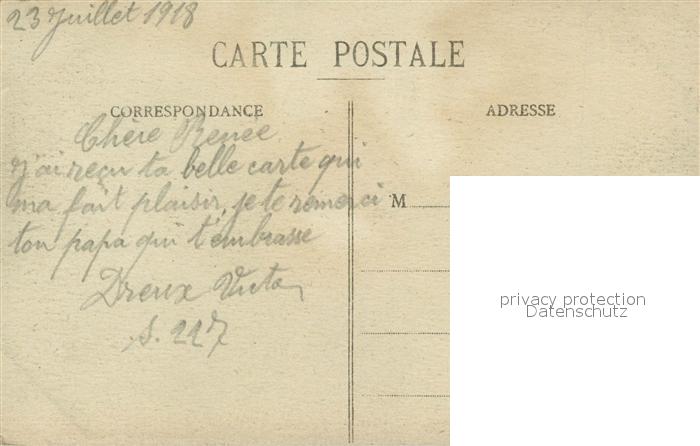 23 Juillet 1918
CARTE POSTALE
CORRESPONDANCE
ADRESSE
Chère Renée
j'ai reçu ta belle carte qui
ma fait plaisir, je te remerci
ton papa qui t'embrasse
Dreux Victor
S. 227
M
privacy protection
Datenschutz